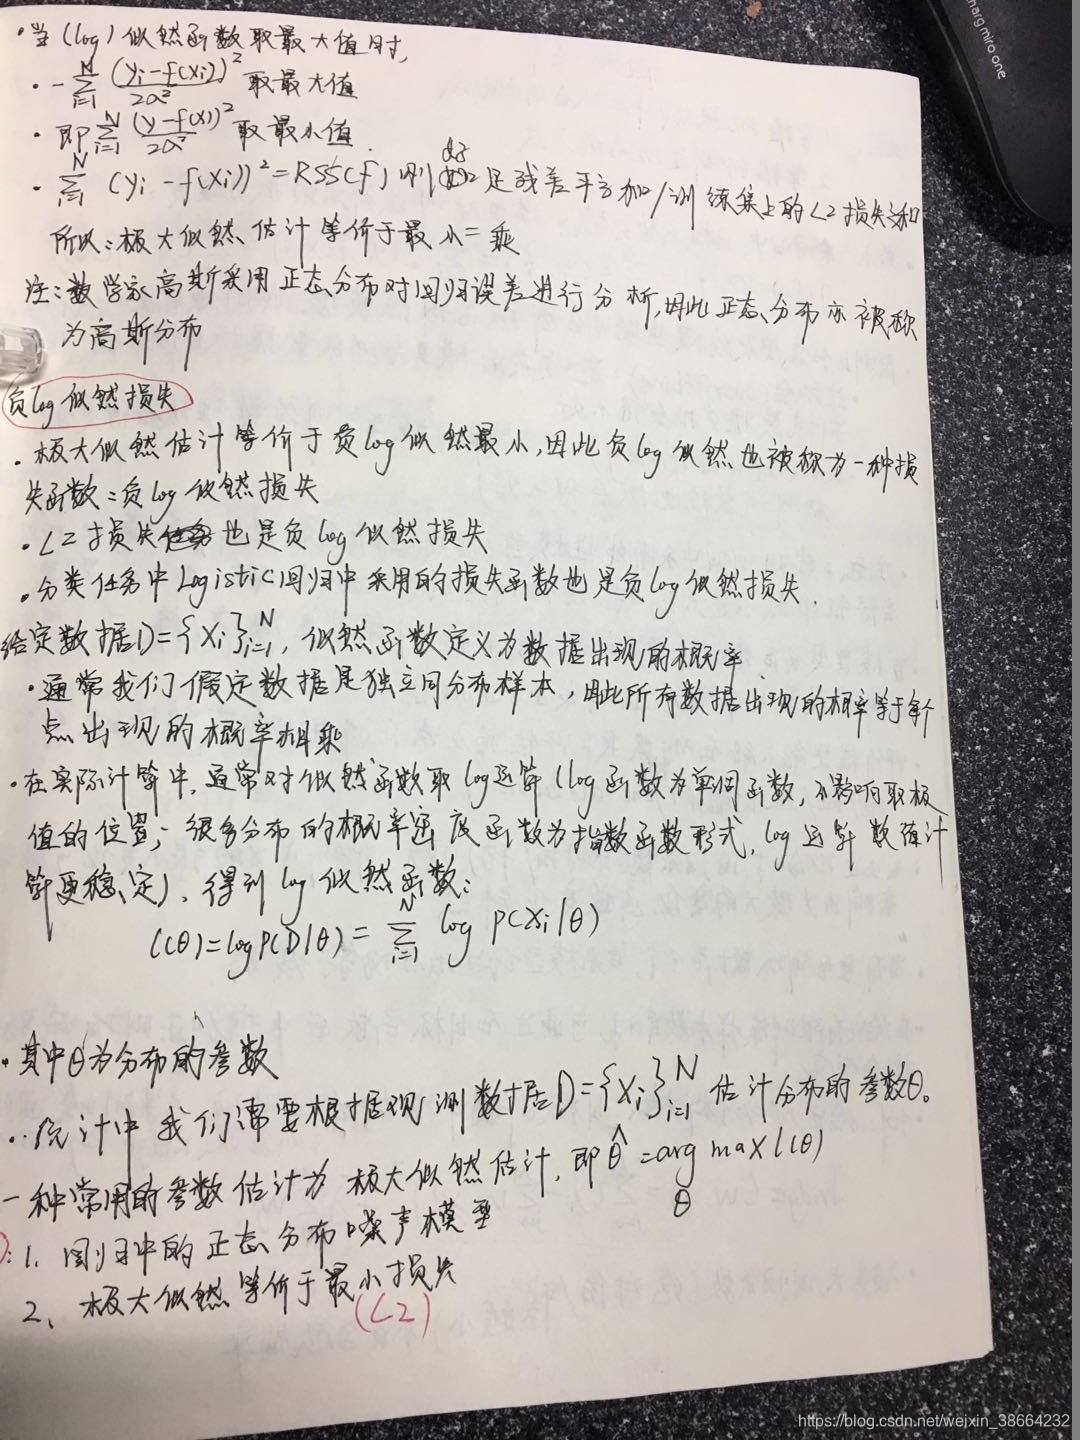 ·当(log)似然函数取最大值时,
· -∑_{i=1}^{N} (yi-f(xi))²/2σ² 取最大值
· 即∑_{i=1}^{N} (y-f(x))²/2σ² 取最小值.
· ∑_{i=1}^{N} (yi-f(xi))²=RSS(f) 则 是残差平方和/训练集上的L2损失和
所以:极大似然估计等价于最小二乘
注:数学家高斯采用正态分布对回归误差进行分析,因此正态分布亦被称
为高斯分布
负log似然损失
·极大似然估计等价于负log似然最小,因此负log似然也被称为一种损
失函数:负log似然损失
·L2损失也是负log似然损失
·分类任务中Logistic回归中采用的损失函数也是负log似然损失.
给定数据D={Xi}_{i=1}^{N},似然函数定义为数据出现的概率.
·通常我们假定数据是独立同分布样本,因此所有数据出现的概率等于每个
点出现的概率相乘
·在实际计算中,通常对似然函数取log运算(log函数为单调函数,不影响取极
值的位置;很多分布的概率密度函数为指数函数形式,log运算数值计
算更稳定),得到log似然函数:
l(θ)=logP(D|θ)=∑_{i=1}^{N} log P(Xi|θ)
·其中θ为分布的参数
·统计中我们需要根据观测数据D={Xi}_{i=1}^{N}估计分布的参数θ。
一种常用的参数估计为极大似然估计,即θ̂=arg max_θ l(θ)
:1、回归中的正态分布噪声模型
2、极大似然等价于最小损失
(L2)
marg miro one
https://blog.csdn.net/weixin_38664232